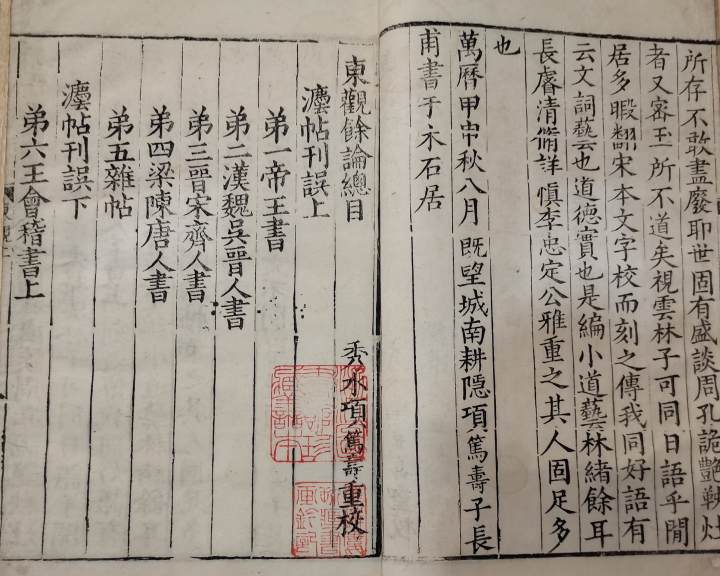 所存不敢盡廢耶世固有盛談周孔詭艷
者又審玉所不道矣視雲林子可同日語乎閒
居多暇翻宋本文字校而刻之傳我同好語有
云文詞藝也道德實也是編小道藝林緒餘耳
長睿清脩詳慎李忠定公雅重之其人固足多
也
萬曆甲申秋八月既望城南耕隱項篤壽子長
甫書于木石居
東觀餘論總目
秀水項篤壽重校
灋帖刊誤上
弟一帝王書
弟二漢魏吳晋人書
弟三晋宋齊人書
弟四梁陳唐人書
弟五雜帖
灋帖刊誤下
弟六王會稽書上